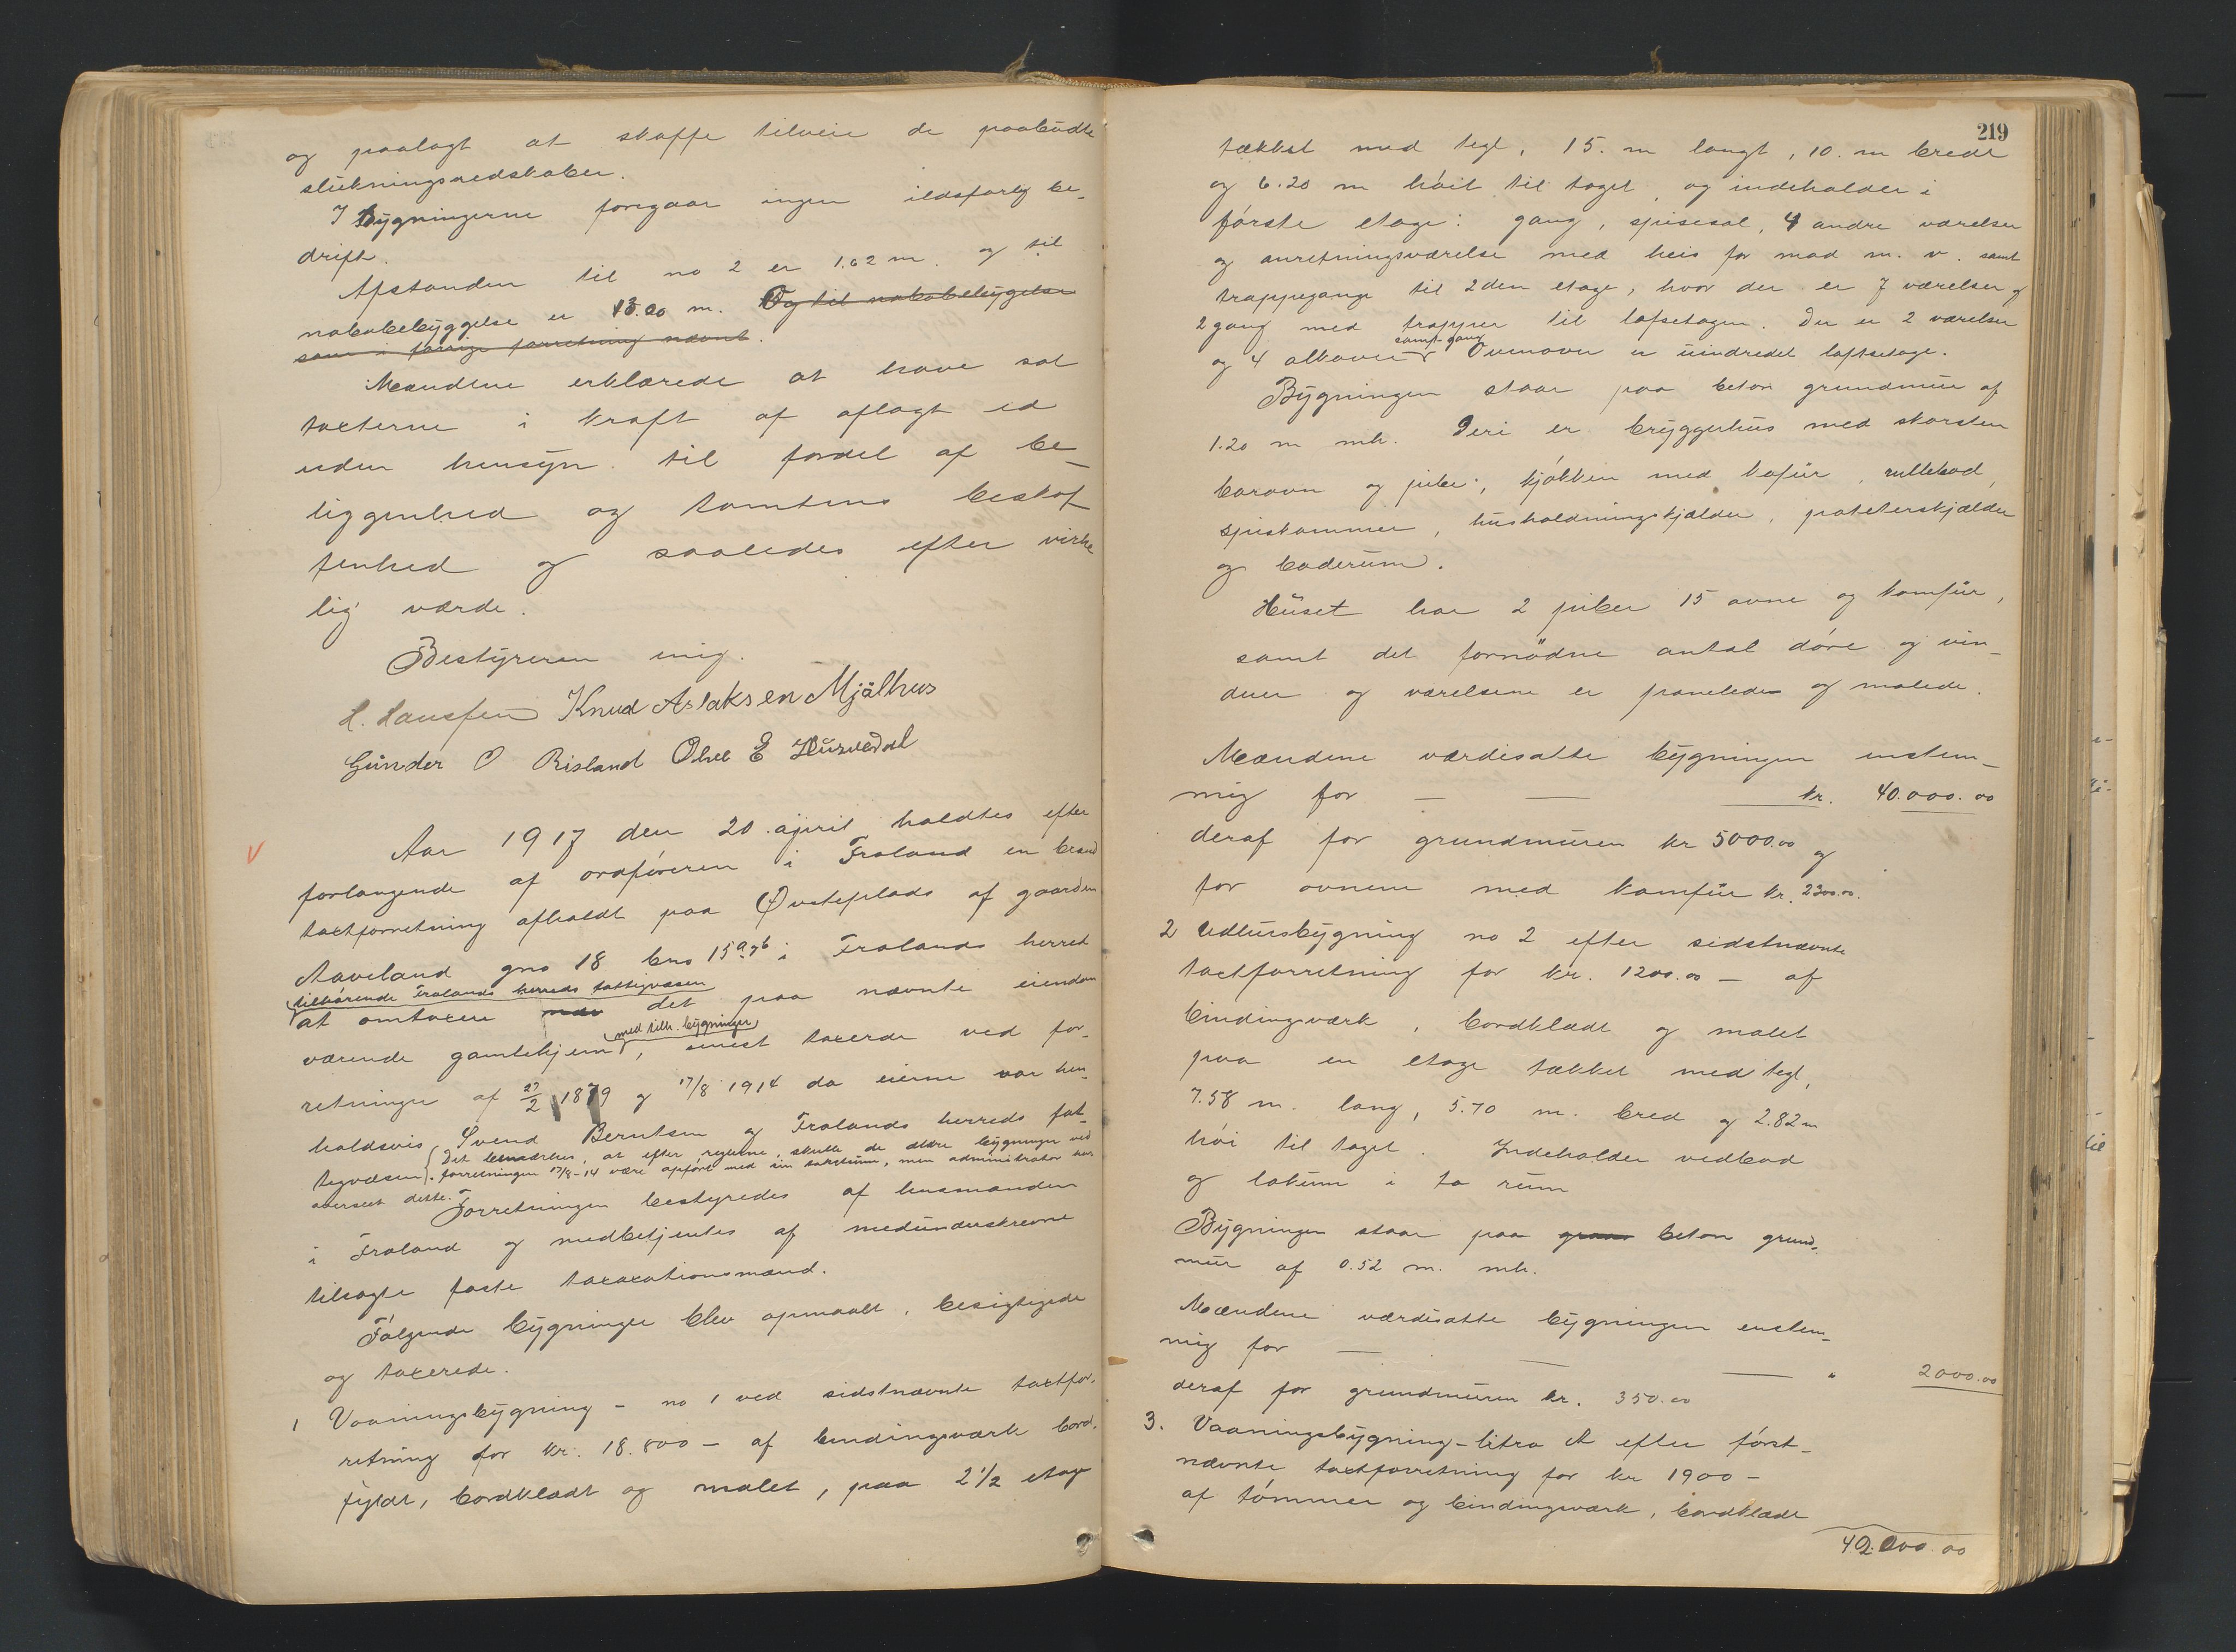 og paalagt at skaffe tilveie de paabudte
slukningsredskaber.
I Bygningerne foregaar ingen ildsfarlig be-
drift.
Afstanden til no 2 er 1.62 m. og til
nabobebyggelse er 13.00 m. Og til nabobebygelse
som i forrige forretning nævnt.
Mændene erklærede at have sat
taxterne i kraft af aflagt ed
uden hensyn til fordel af be-
liggenhed og tomtens beskaf
fenhed og saaledes efter virke
lig værde.
Bestyreren enig.
H. Hansen Knud Aslaksen Mjålhus
Gunder O Risland Olav E Husvedal
V
Aar 1917 den 20. april holdtes efter
forlangende af ordføreren i Froland en brand
taxtforretning afholdt paa Øvsteplads af gaarden
Aaveland gno 18 bno 15 a, b i Frolands herred
(tilhørende Frolands herreds fattigvæsen
at omtaxere det paa nævnte eiendom
(med tilh. bygninger)
værende gamlehjem, senest taxerede ved for-
retninger af 27/2 1879 og 17/8 1914 da eierne var hen-
holdsvis Svend Berntsen og Frolands herreds fat-
(Det bemærkes, at efter reglerne skulde de ældre bygninger ved
tigvæsen). forretningen 17/8-14 være opført med sin takstsum, men administrator har
overseet dette.
Forretningen bestyredes af lensmanden
i Froland og medbetjentes af medunderskrevne
tilsagte faste taxationsmænd.
Følgende bygninger blev opmaalt, besigtigede
og taxerede.
1 Vaaningsbygning - no 1 ved sidstnævnte taxtfor-
retning for kr. 18.800 - af bindingsværk bord-
fyldt, bordklædt og malet, paa 2 1/2 etage
219
tækket med tegl, 15. m langt, 10. m bredt
og 6.20 m høit til taget, og indeholder i
første etage: gang, spisesal, 4 andre værelser
og anretningsværelse med heis for mad m. v. samt
trappegange til 2den etage, hvor der er 7 værelser og
2 gang med trapper til loftsetagen. Der er 2 værelser
samt gang
og 4 alkover. Ovenover er uindredet loftsetage.
Bygningen staar paa beton grundmur af
1.20 m mh. Deri er bryggerhus med skorsten
bagerovn og pibe, kjøkken med kofur, rullebod,
spiskammer, husholdningskjælder, poteterskjælder
og baderum.
Huset har 2 piber 15 ovne og komfur,
samt det fornødne antal døre og vin-
duer og værelsene er panelede og malede.
Mændene værdisatte bygningen enstem-
mig for — — — kr. 40.000.00
deraf for grundmuren kr 5000.00 og
for ovnene med komfur kr. 2300.00.
2 Udhusbygning no 2 efter sidstnævnte
taxtforretning for kr. 1200.00 - af
bindingsværk, bordklædt og malet
paa en etage tækket med tegl,
7.58 m. lang, 5.70 m. bred og 2.82 m
høi til taget. Indeholder vedbod
og lokum i to rum
Bygningen staar paa beton grund-
mur af 0.52 m. mh.
Mændene værdisatte bygningen enstem-
mig for — — — " 2000.00
deraf for grundmuren kr. 350.00
3. Vaaningsbygning - litra A efter først-
nævnte taxtforretning for kr 1900 -
af tømmer og bindingsværk, bordklædt
42.000.00